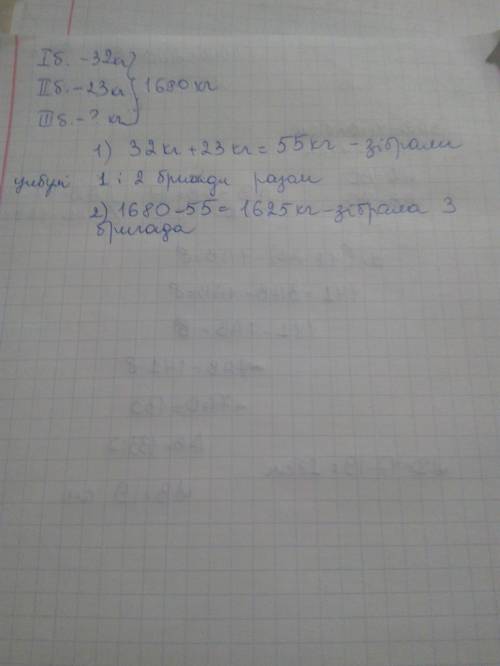 І б. - 32кг
ІІ б. - 23кг 1680 кг
ІІІ б. - ? кг
1) 32 кг + 23 кг = 55 кг - зібрали
1 і 2 бригади разом
2) 1680 - 55 = 1625 кг - зібрала 3
бригада